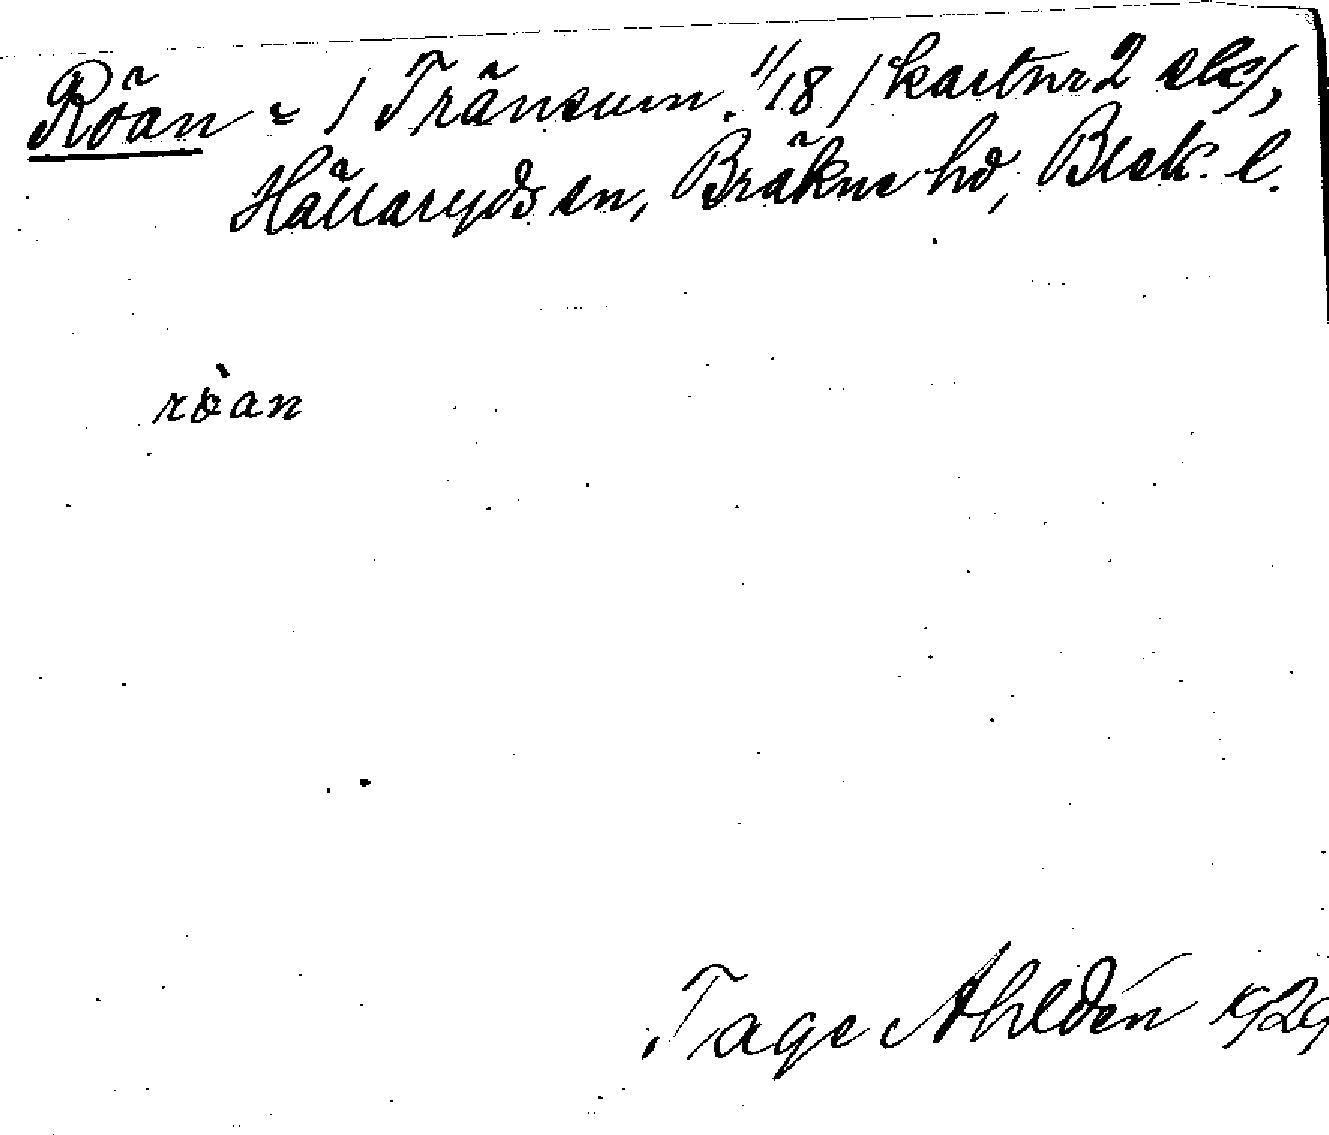 Röan ~ / Tränsum. 1/18 / kartnr 2 sks/,
Hällaryds sn, Bräkne hd, Blek. l.
ròan
Tage Ahldén 1929